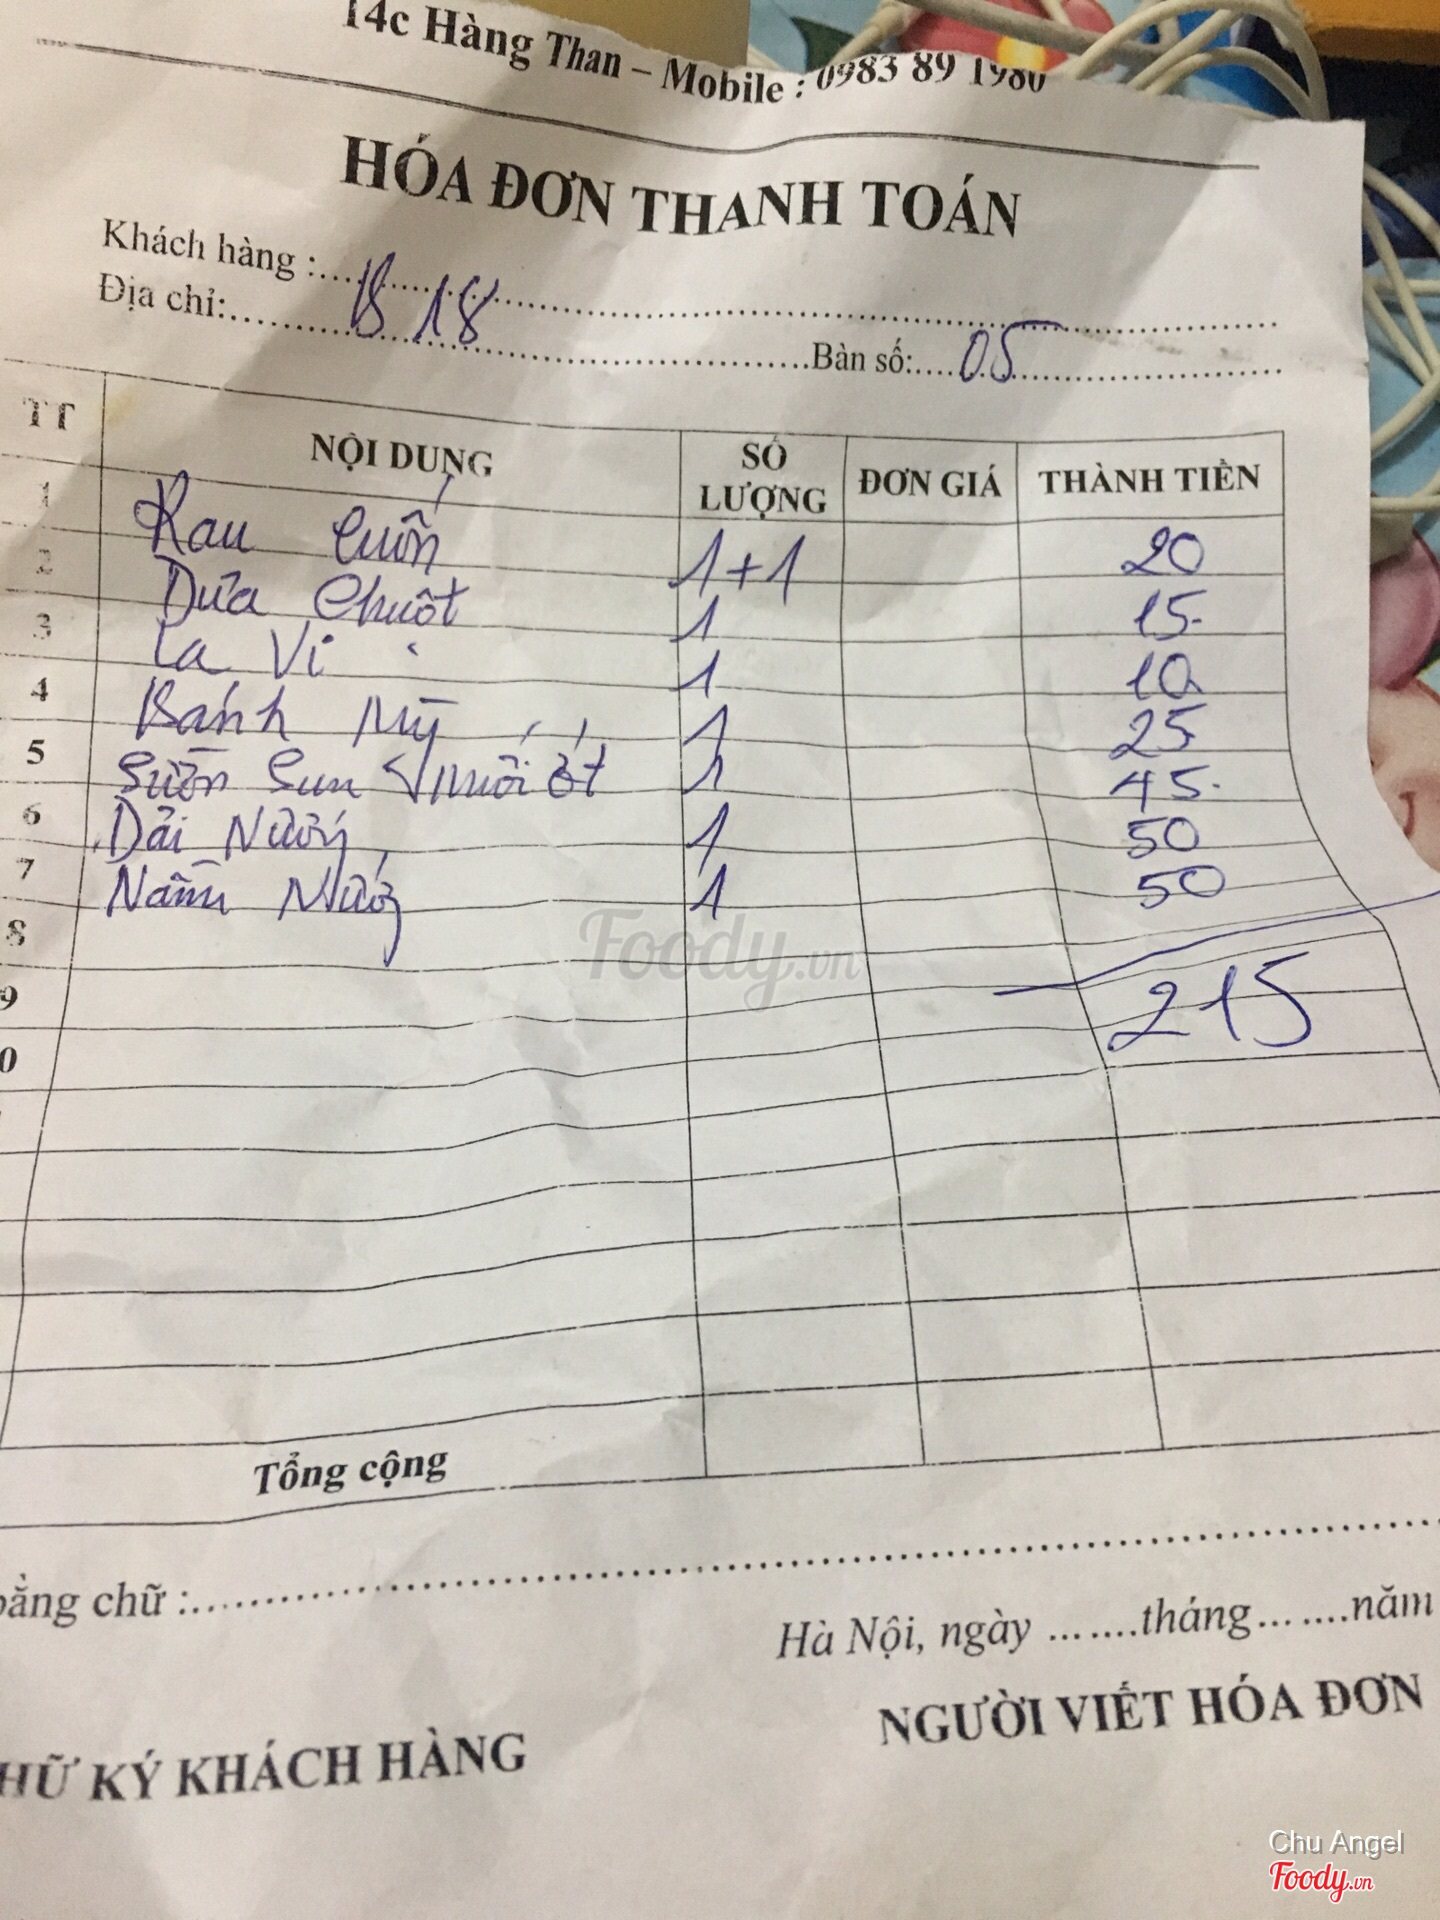 14c Hàng Than – Mobile : 0983 89 1980
HÓA ĐƠN THANH TOÁN
Khách hàng :
Địa chỉ: B 18
Bàn số: 05
TT NỘI DUNG SỐ LƯỢNG ĐƠN GIÁ THÀNH TIỀN
1 Rau cuốn 1+1 20
2 Dưa chuột 1 15
3 La Vi 1 10
4 Bánh Mỳ 1 25
5 Sườn Sun muối ớt 1 45
6 Dải Nướng 1 50
7 Nầm Nướng 1 50
8
9 215
0
Tổng cộng
bằng chữ :
Hà Nội, ngày .......tháng.......năm
NGƯỜI VIẾT HÓA ĐƠN
HỮ KÝ KHÁCH HÀNG
Foody.vn
Chu Angel
Foody.vn